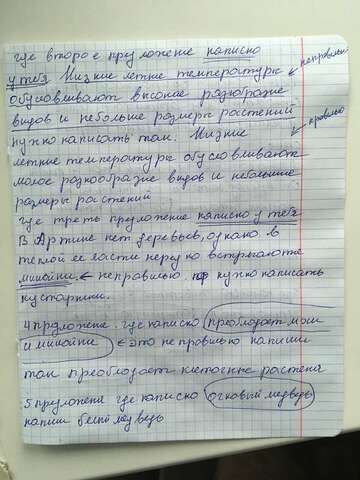 где второе предложение написно
у тебя Низкие летние температуры ← неправильн
обуславливают высокое разнобразие
видов и небольшие размеры растений
нужно написать там. Низкие ← правильно
летние температуры обусловливают
малое разнообразие видов и небольшие
размеры растений
где треть предложение написно у тебя
В Арктике нет деревьев, однако в
теплой ее части нередко встречаются
лишайники ← неправильно. нужно написать
кустарники.
4 предложение. где написно преобладает мхи
и лишайники ← это не провильно напиши
там преобладает цветочные растена
5 предложена где написано очковый медведь
напиши белый медведь